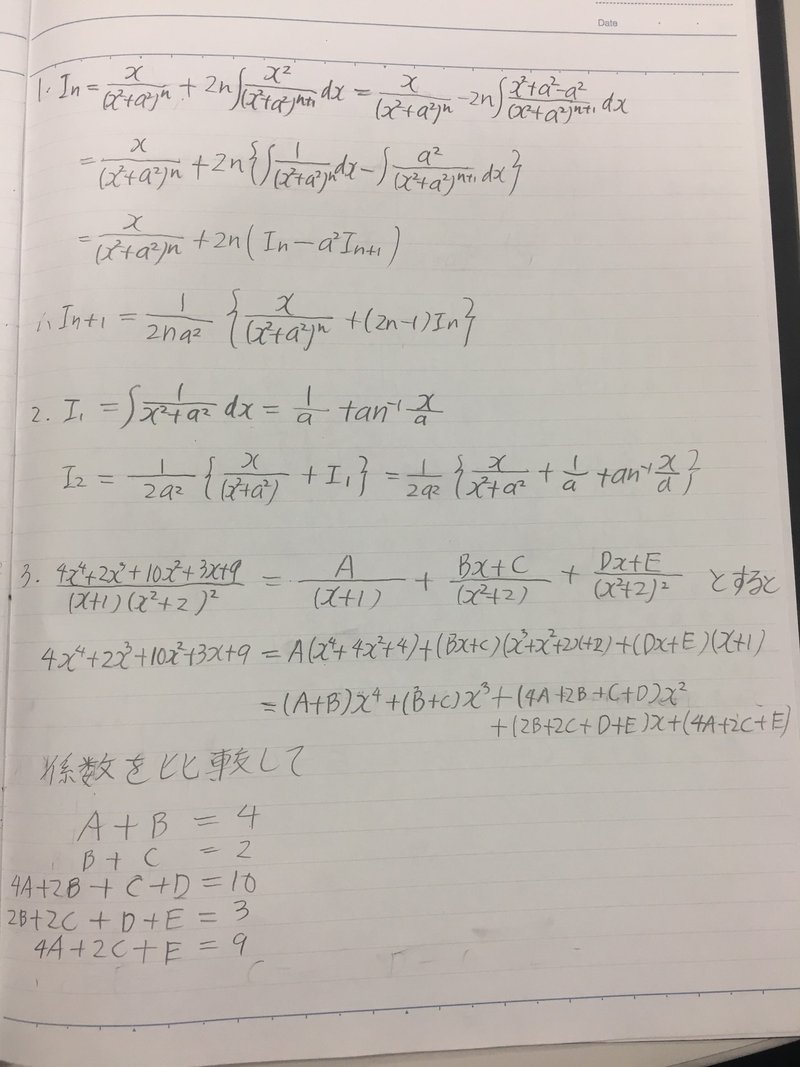 Date
1. In = x/(x²+a²)ⁿ + 2n∫x²/(x²+a²)ⁿ⁺¹ dx = x/(x²+a²)ⁿ - 2n∫(x²+a²-a²)/(x²+a²)ⁿ⁺¹ dx
= x/(x²+a²)ⁿ + 2n{∫1/(x²+a²)ⁿ dx - ∫a²/(x²+a²)ⁿ⁺¹ dx}
= x/(x²+a²)ⁿ + 2n(In - a²In+1)
∴ In+1 = 1/2na² {x/(x²+a²)ⁿ + (2n-1)In}
2. I₁ = ∫1/(x²+a²) dx = 1/a tan⁻¹ x/a
I₂ = 1/2a² {x/(x²+a²) + I₁} = 1/2a² {x/(x²+a²) + 1/a tan⁻¹ x/a}
3. (4x⁴+2x³+10x²+3x+9)/((x+1)(x²+2)²) = A/(x+1) + (Bx+C)/(x²+2) + (Dx+E)/(x²+2)² とすると
4x⁴+2x³+10x²+3x+9 = A(x⁴+4x²+4)+(Bx+C)(x³+x²+2x+2)+(Dx+E)(x+1)
=(A+B)x⁴+(B+C)x³+(4A+2B+C+D)x²
+(2B+2C+D+E)x+(4A+2C+E)
係数を比較して
A+B = 4
B+C = 2
4A+2B+C+D = 10
2B+2C+D+E = 3
4A+2C+E = 9